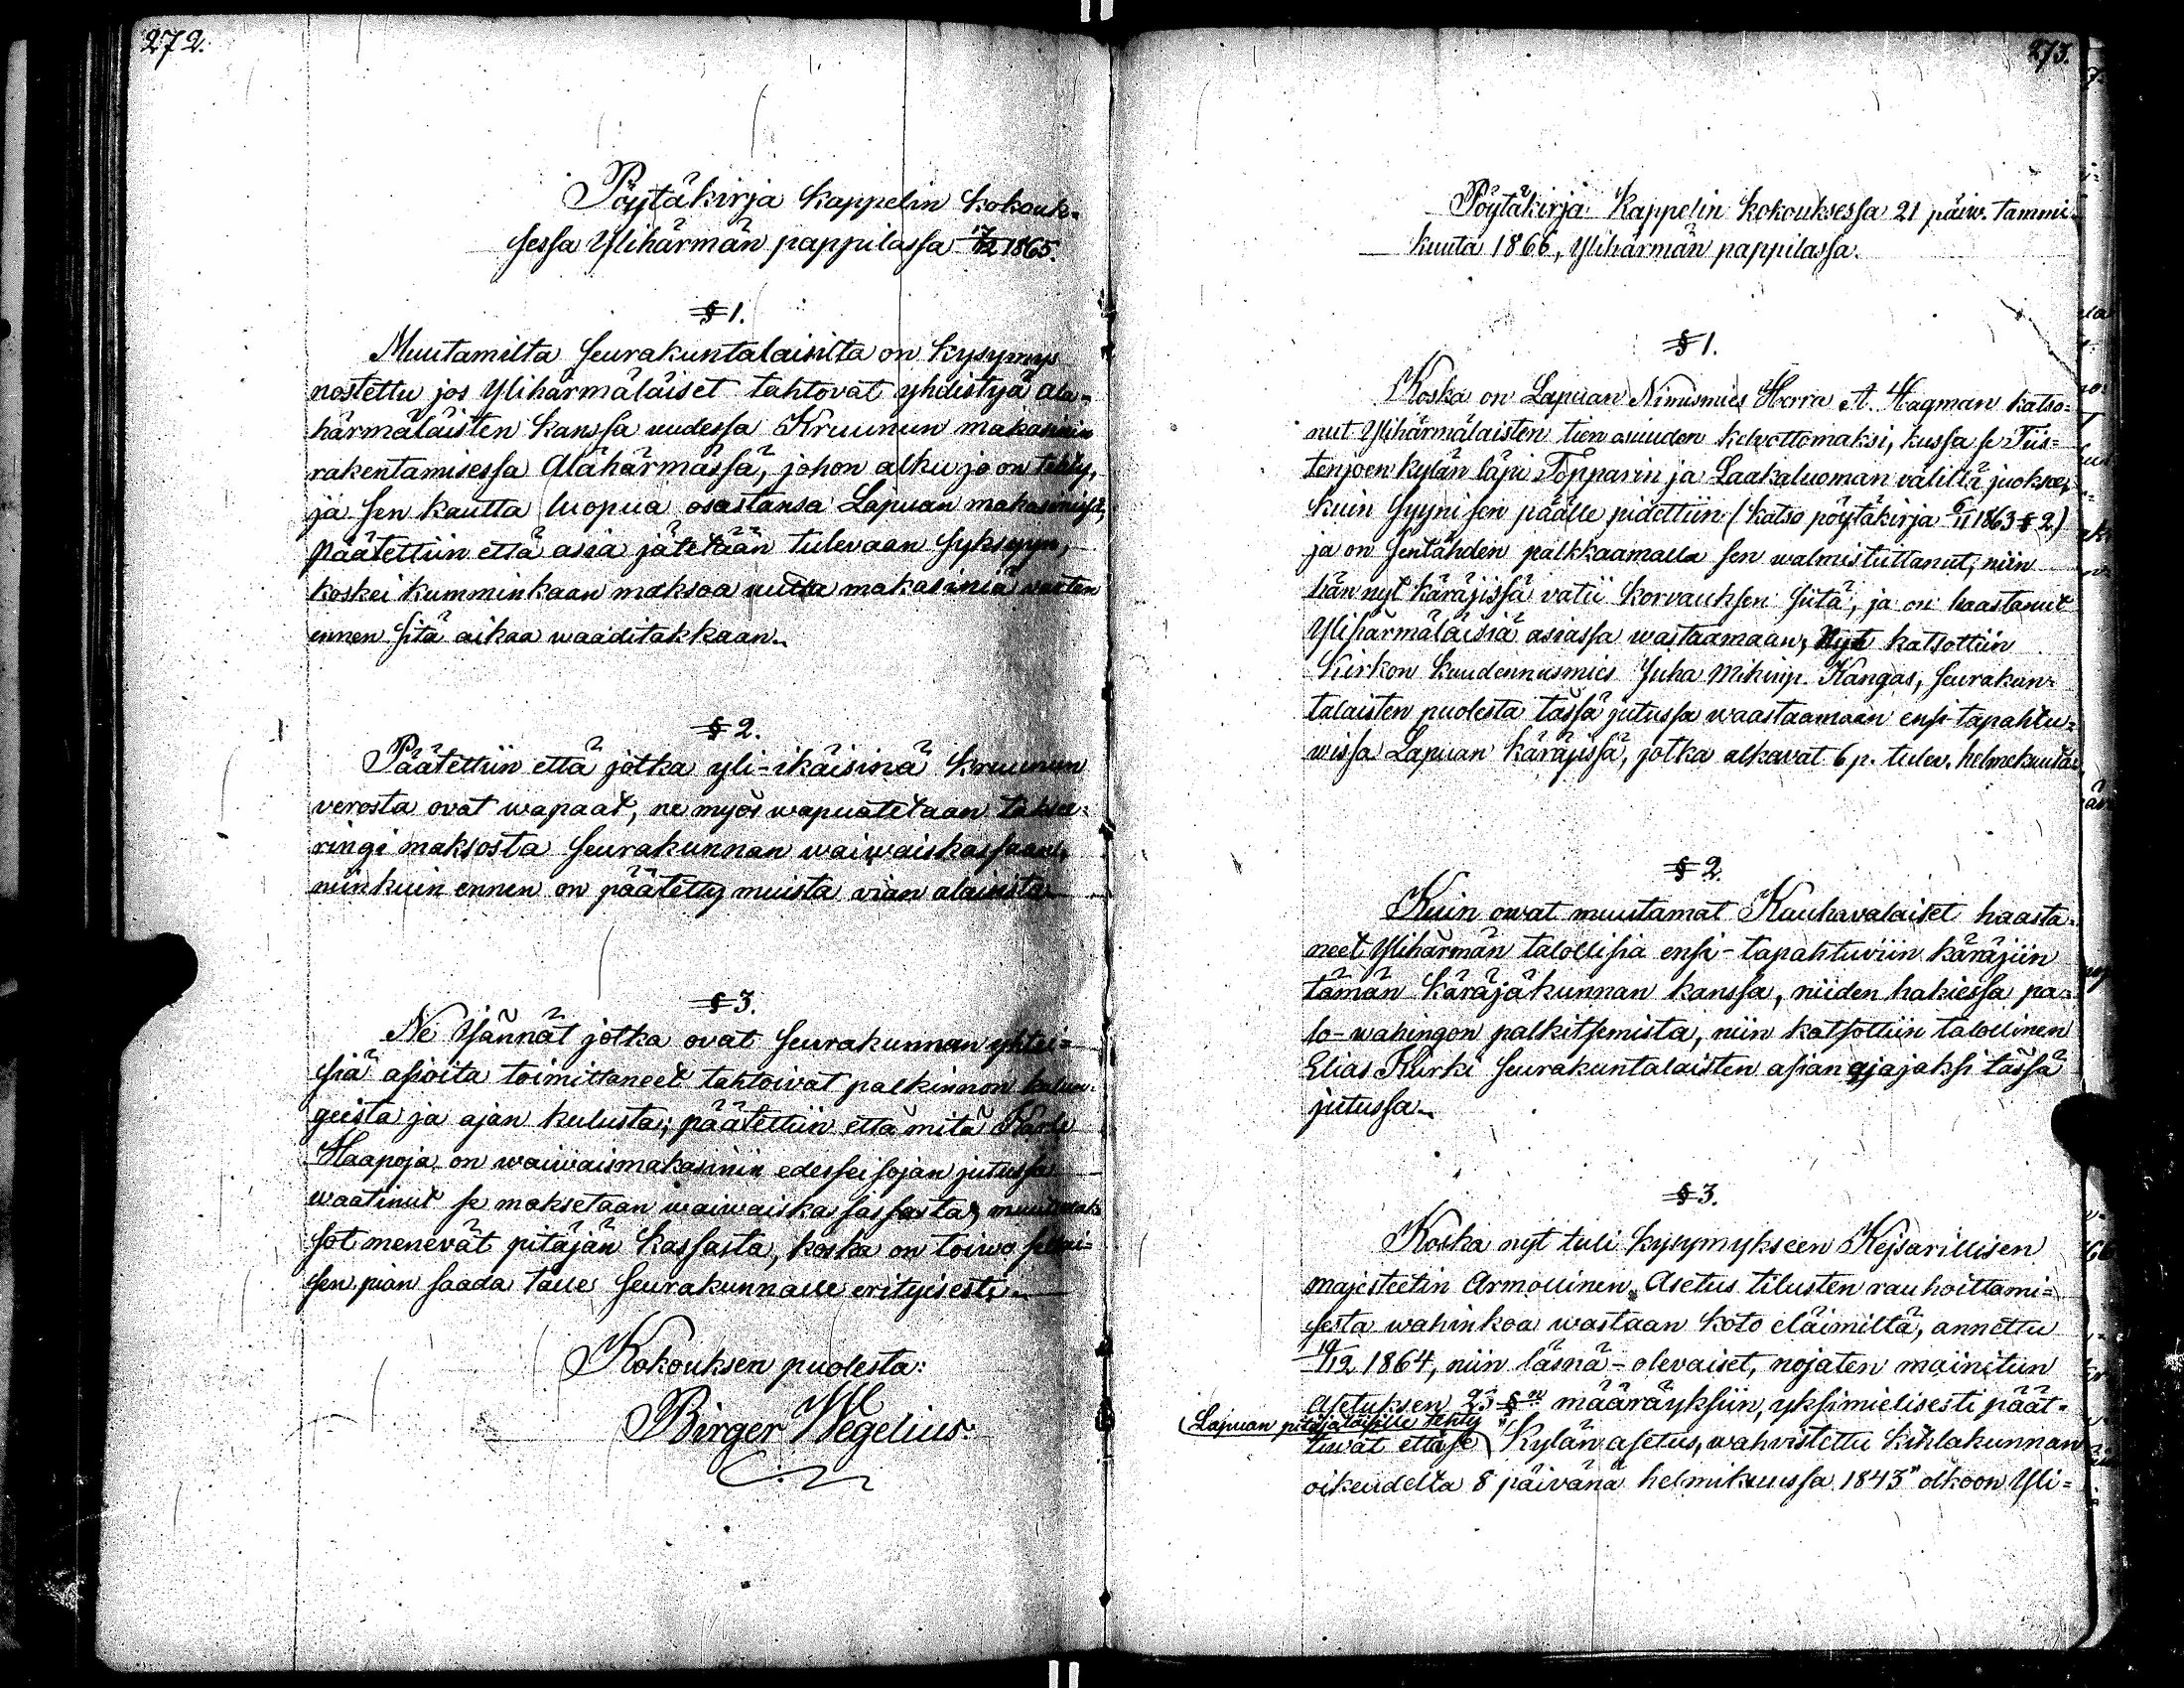 272.
Pöytäkirja Kappelin kokouk-
sessa Ylihärmän pappilassa 17/12 1865.
§ 1.
Muutamilta seurakuntalaisilta on kysymys
nostettu jos Ylihärmäläiset tahtovat yhdistyä Ala-
härmäläisten kanssa uudessa Kruunun makasinin
rakentamisessa Alahärmässä, johon alku jo on tehty,
ja sen kautta luopua osastansa Lapuan makasinista,
päätettiin että asia jätetään tulevaan syksyyn,
koskei kumminkaan maksoa uutta makasiniä warten
ennen sitä aikaa waaditakkaan.
§ 2.
Päätettiin että jotka yli-ikäisinä kruunun
verosta ovat wapaat, ne myös wapuatetaan taksee-
ringi maksosta seurakunnan waiwaiskassaan,
niinkuin ennen on päätetty muista vian alaisista
§ 3.
Ne Isännät jotka ovat seurakunnan yhtei-
siä asioita toimittaneet tahtoivat palkinnon kulun-
geista ja ajan kulusta; päätettiin että mitä Karle
Haapoja on waiwaismakasinin edesseisojan jutussa
waatinut se maksetaan waiwaiskassassasta, muut mak-
sot menevät pitäjän kassasta, koska on toiwo sellai-
sen pian saada tälle seurakunnalle erityisesti.
Kokouksen puolesta:
Birger Wegelius.
273.
Pöytäkirja Kappelin kokouksessa 21 päiw. tammi-
kuuta 1866, Ylihärmän pappilassa.
§ 1.
Koska on Lapuan Nimismies Herra A. Hagman katso-
nut Ylihärmälaisten tien osuuden kelvottomaksi, kussa se Tiis-
tenjoen kylän läpi Topparin ja Laakaluoman välillä juoksee,
kuin syyni sen päälle pidettiin (katso pöytäkirja 6/11 1863 § 2)
ja on sentähden palkkaamalla sen walmistuttanut, niin
hän nyt käräjissä vatii korvauksen siitä, ja on haastanut
Ylihärmäläisiä asiassa wastaamaan; Nyt katsottiin
Kirkon kuudennusmies Juha Mikinp. Kangas, seurakun-
talaisten puolesta tässä jutussa waastaamaan ensi tapahtu-
wissa Lapuan käräjissä, jotka alkavat 6 p. tulev. helmekuuta.
§ 2.
Kuin owat muutamat Kauhavalaiset haasta-
neet Ylihärmän talollisia ensi-tapahtuviin käräjiin
tämän käräjäkunnan kanssa, niiden hakiessa pa-
lo-wahingon palkitsemista, niin katsottiin talollinen
Elias Kurki seurakuntalaisten asian ajajaksi tässä
jutussa.
§ 3.
Koska nyt tuli kysymykseen Kejsarillisen
majesteetin Armollinen Asetus tilusten rauhoittami-
sesta wahinkoa wastaan koto eläimiltä, annettu
19/12 1864, niin läsnä-olevaiset, nojaten mainitun
Asetuksen 23 §n määräyksiin, yksimielisesti päät-
Lapuan pitäjäläisille tehty
tiwät että se "Kylän asetus, wahvistettu kihlakunnan
oikeudelta 8 päivänä helmikuussa 1843" olkoon Yli-